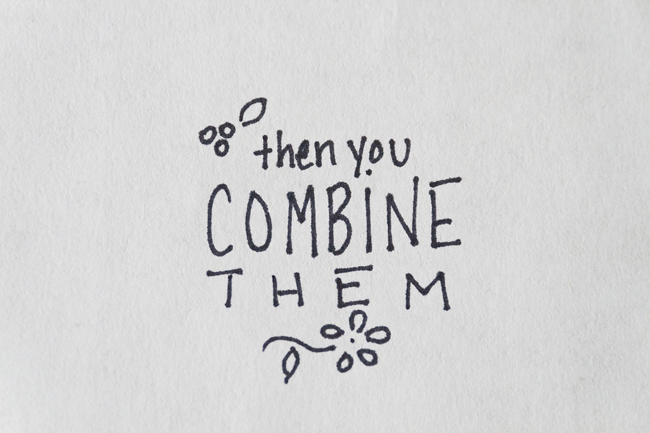 then you
COMBINE
THEM